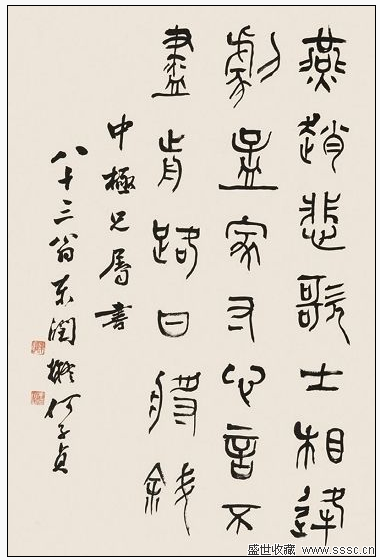 燕趙悲歌士相逢
劇孟家寸心言不
盡前路日將斜
中極兄屬書
八十三翁东润擬何子貞
盛世收藏 www.sssc.cn